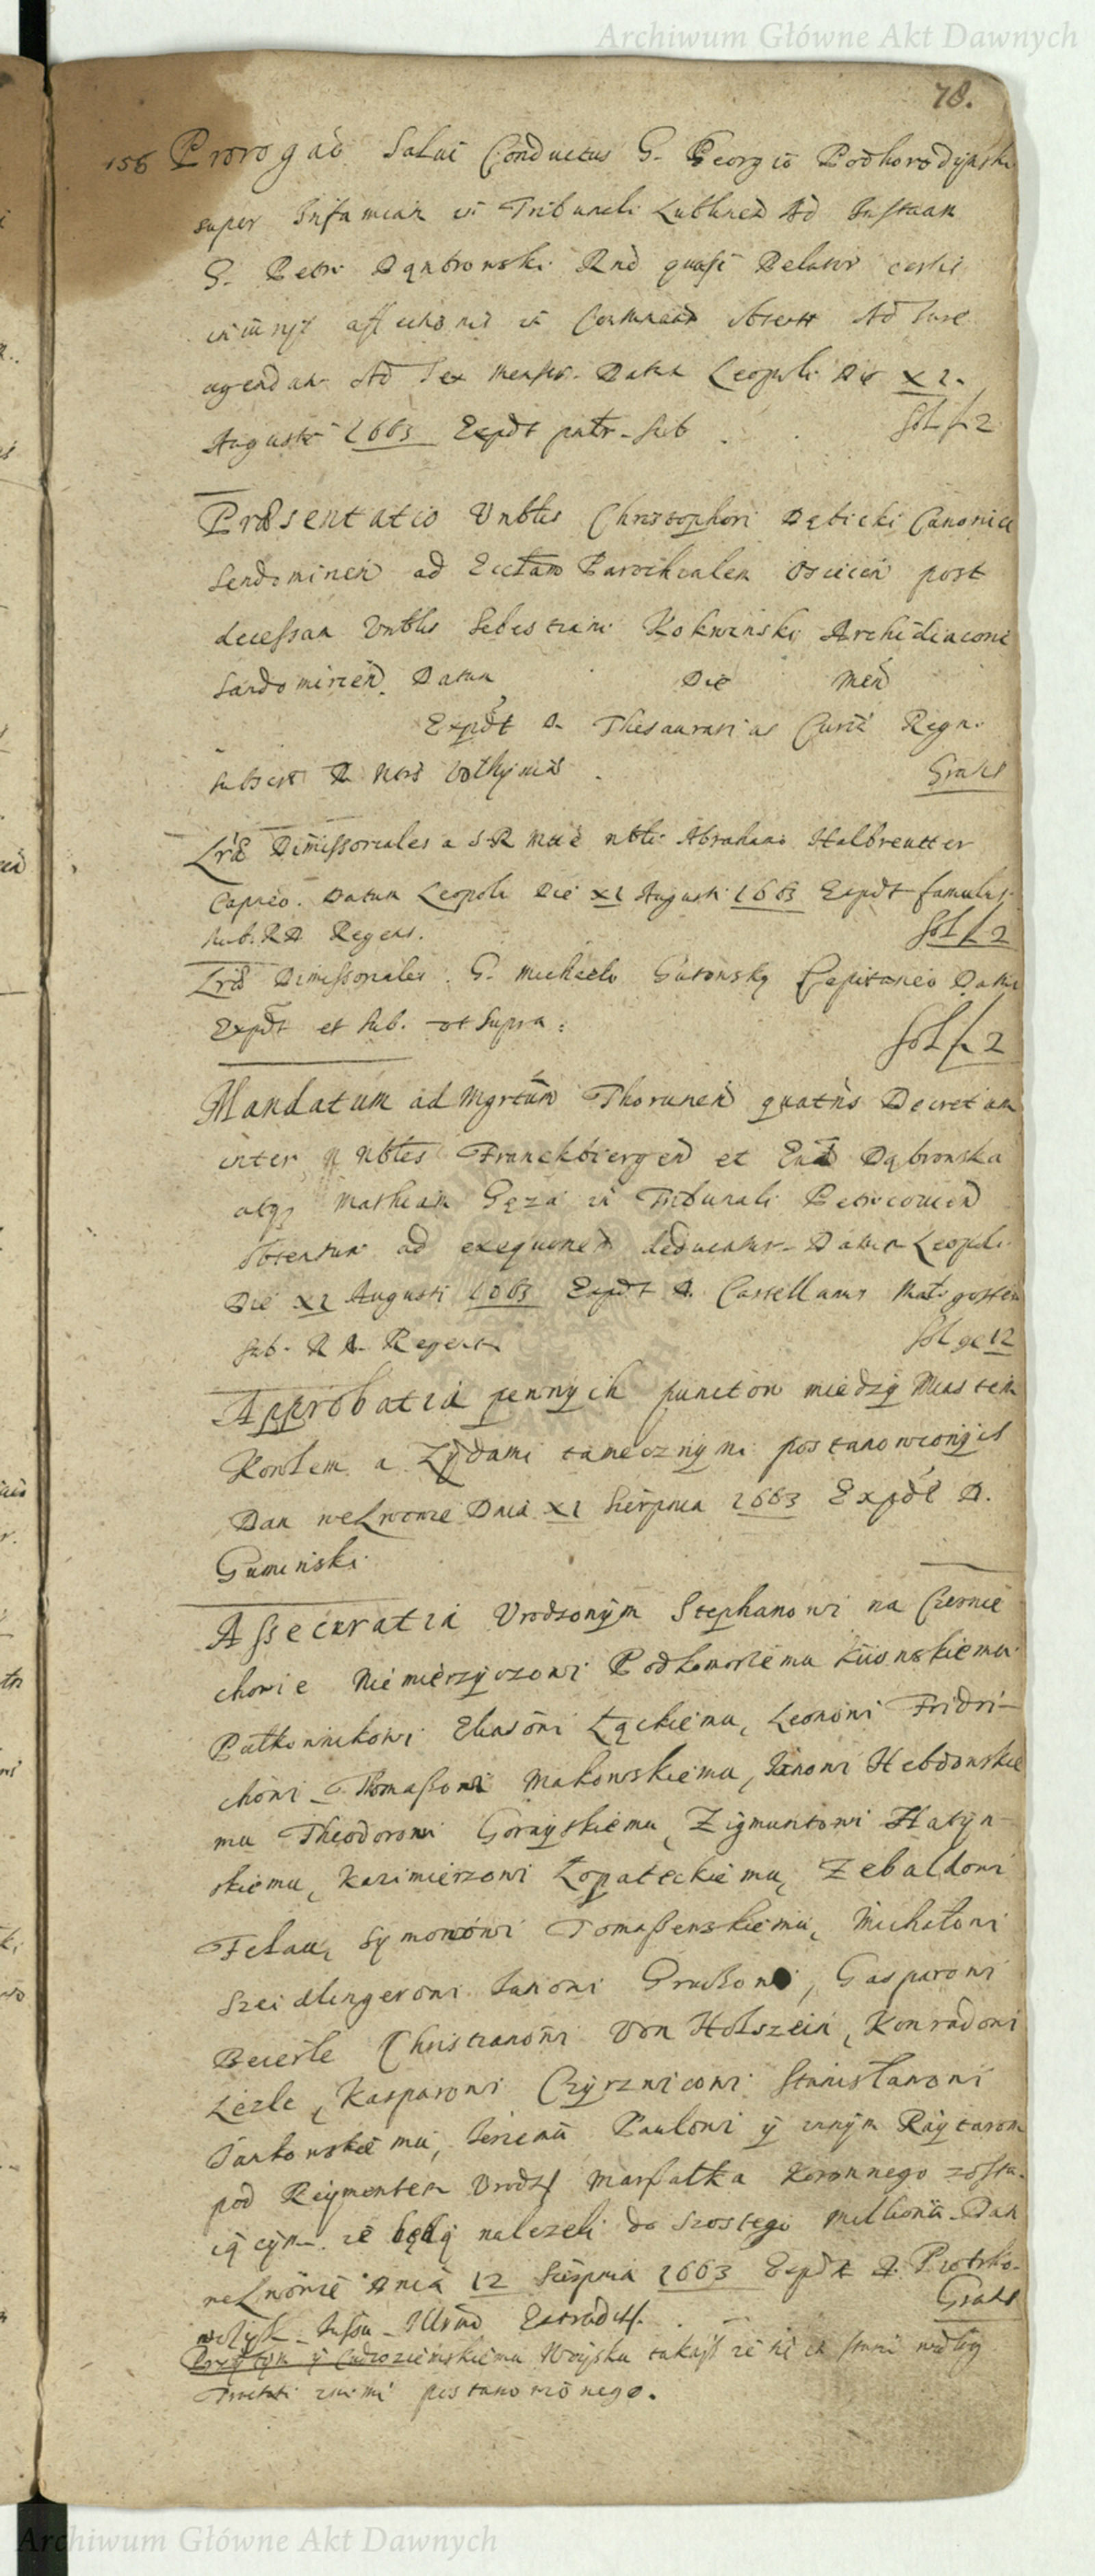 Archiwum Główne Akt Dawnych
78.
156 Prorogaõ Salui Conductus G. Georgio Podhorodynski
super Infamiam in Tribunali Lublineñ Ad Instaan
G. Petri Dąmbrowski
Ad Sex Menses. Datum Leopoli Die XI.
Augusti 1663 Expdt patr. sub
sol f 2
Præsentatio Vnblis Christophori Dębicki Canonici
Sendomirieñ ad Ecclam Parochialem Osieceñ post
decessum Vnblis Sebastiani Kokwinski Archidiaconi
Sandomirieñ. Datum Die Meñ
Expdt D. Thesaurarius Curiæ Regn.
subscr R Nors Volhyniæ
Gratis
Lræ Dimissoriales a S R Mtte nbli Abrahamo Halbreutter
Capneo. Datum Leopoli Die XI Augusti 1663 Expdt famulus
sub. RA Regens.
sol f 2
Lræ Dimissoriales G. Michaelo Gutowsky Capitaneo Datum
Expdt et sub. ut supra.
sol f 2
Mandatum ad Mgrtum Thoruneñ quatns Decretum
inter N Nbles Franckbiergeñ et Dąbrowska
atq Mathiam Gęza in Tribunali Petricouieñ
obtentum ad exequoneñ deducatur. Datum Leopoli
Die XI Augusti 1663 Expdt D. Castellanus Małogosteñ
sub. R A. Regens
sol gr 12
Approbatia pewnych punctow między Miastem
Kowlem a Zydami tamecznymi postanowionych
Dan weLwowie Dnia XI Sierpnia 1663 Expdt D.
Guminski
Assecuratia Vrodzonym Stephanowi na Czernie
chowie Niemierzyczowi Podkomorzemu Kiiowskiemu
Pułkownikowi Eliasowi Łąckiemu, Leonowi Fridri-
chowi Thomaszowi Makowskiemu, Janowi Hebdowskie
mu Theodorowi Gorayskiemu, Zigmuntowi Hatyn-
skiemu, Kazimierzowi Łopateckiemu, Zebaldowi
Felau, Symonowi Tomaszewskiemu, Michałowi
Szeidlingerowi Janowi Gruzowi, Gasparowi
Beierle Christianowi Von Holszein, Konradowi
Lezle, Kasparowi Czyrznicowi Stanisławowi
Jankowskiemu, Jerzemu Pawłowi y innym Raytarom
pod Reymentem Vrodz Marszałka Koronnego zosta-
iącym. ze będą nalezeli do szostego Millionu. Dan
weLwowie Dnia 12 Sierpnia 1663 Expdt D. Piotrko-
Gratis
wczyk Jussu Illsmo Extradit.
Przytym y Cudzoziemskiemu Woysku takasz
Tractati znimi postanowionego.
Archiwum Główne Akt Dawnych